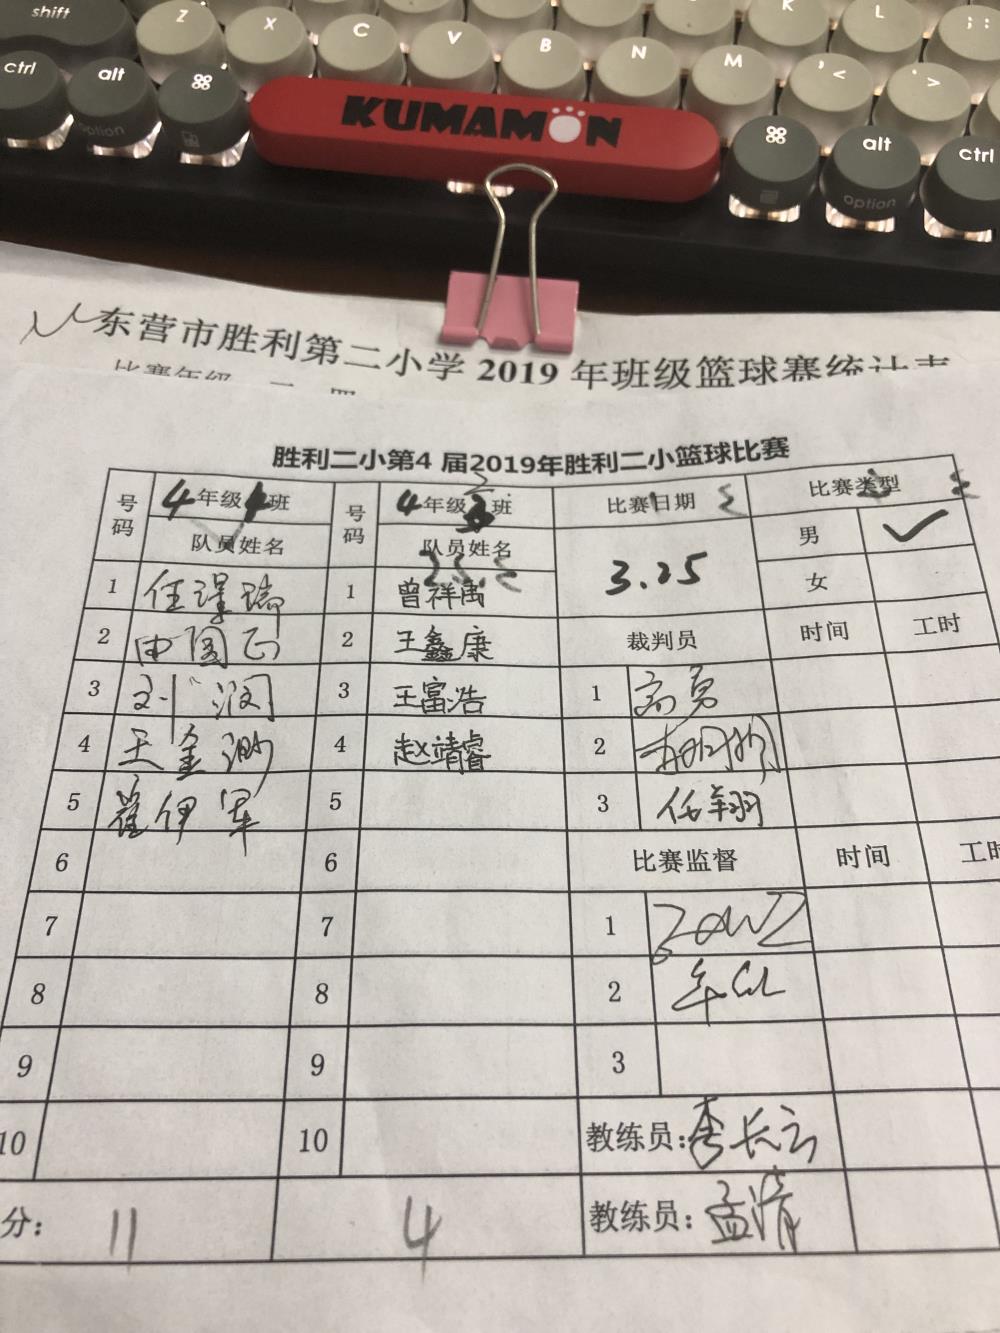 shift Z X C V B N M K L ; :
ctrl alt ⌘ , < . > ⌘ alt ctrl
option option
KUMAMON
东营市胜利第二小学 2019 年班级篮球赛统计表
胜利二小第4 届2019年胜利二小篮球比赛
号码 4年级4班 号码 4年级3班 比赛日期 比赛类型
队员姓名 队员姓名 3.25 男 ✓
女
1 任瑾瑞 1 曾祥禹
2 田国正 2 王鑫康 裁判员 时间 工时
3 刘润 3 王富浩 1 高勇
4 王金渺 4 赵靖睿 2
5 崔伊军 5 3 任翔
6 6 比赛监督 时间 工时
7 7 1
8 8 2
9 9 3
10 10 教练员:李长云
分: 11 4 教练员:孟清